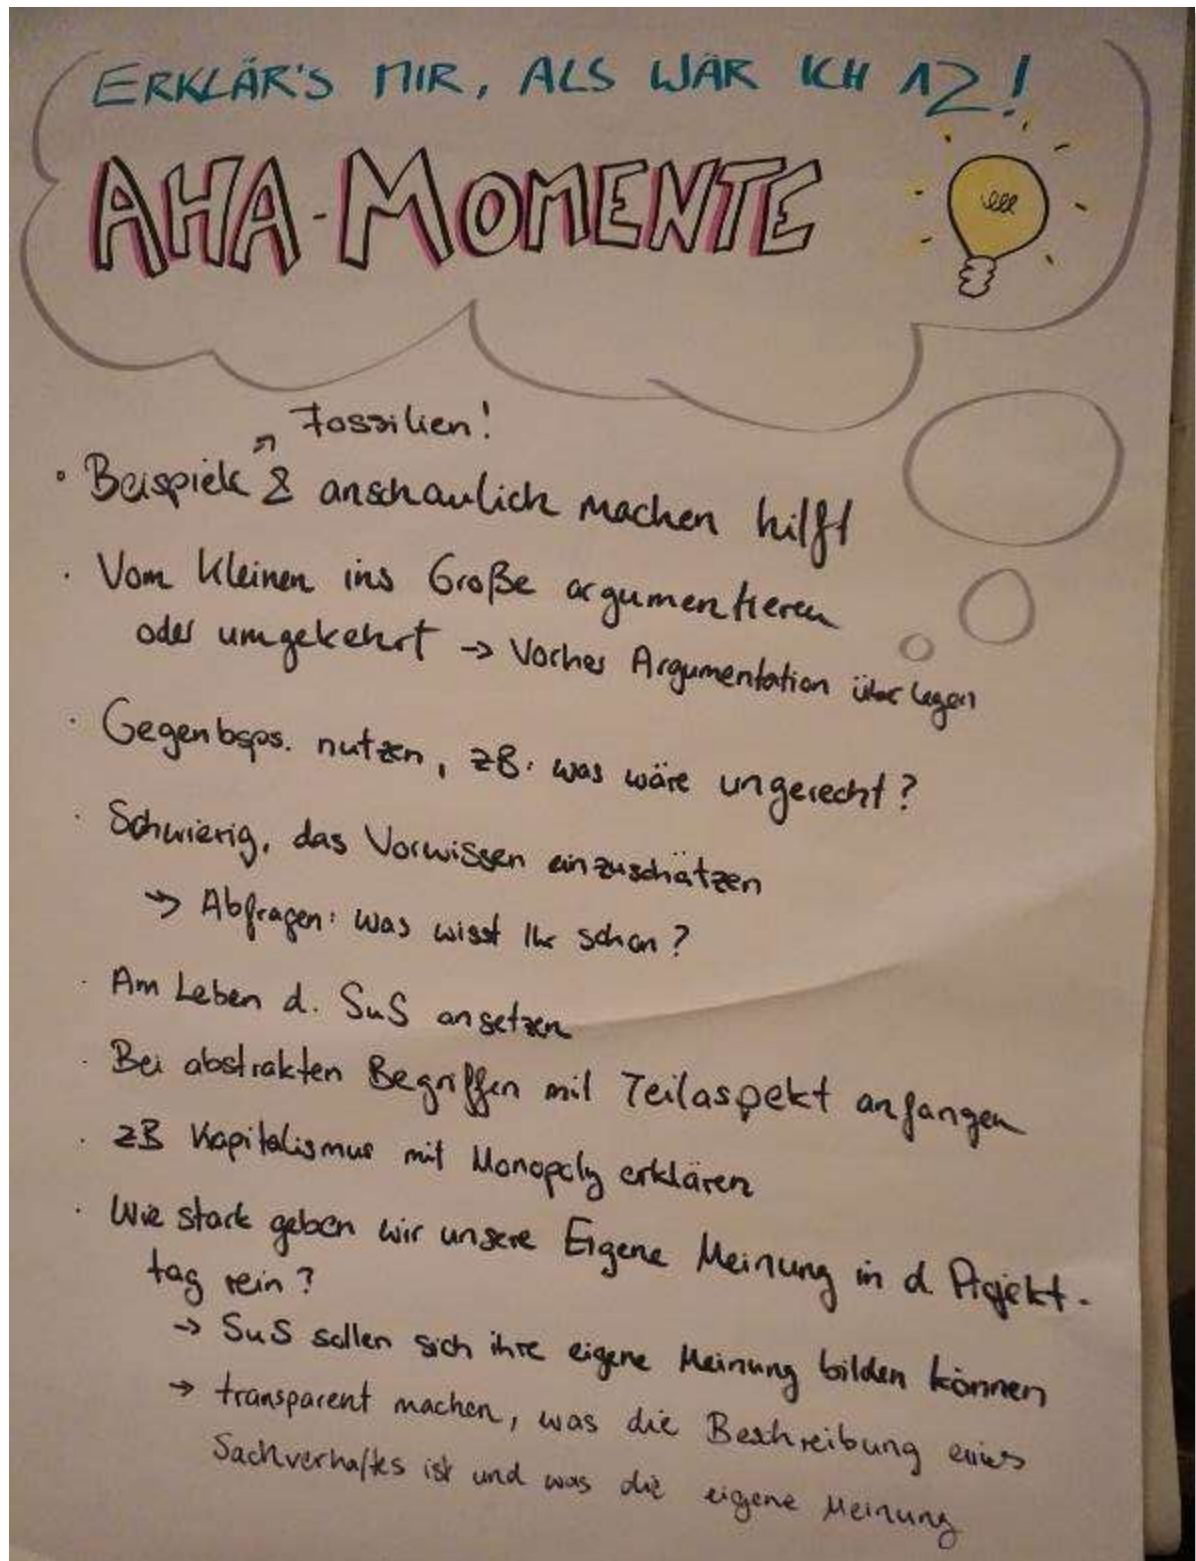 ERKLÄR'S MIR, ALS WÄR ICH 12!
AHA-MOMENTE
↗ Fossilien!
• Beispiele & anschaulich machen hilft
• Vom Kleinen ins Große argumentieren
oder umgekehrt → Vorher Argumentation überlegen
• Gegenbsps. nutzen, zB. was wäre ungerecht?
• Schwierig, das Vorwissen einzuschätzen
→ Abfragen: was wisst Ihr schon?
• Am Leben d. SuS ansetzen
• Bei abstrakten Begriffen mit Teilaspekt anfangen
• zB Kapitalismus mit Monopoly erklären
• Wie stark geben wir unsere Eigene Meinung in d. Projekt-
tag rein?
→ SuS sollen sich ihre eigene Meinung bilden können
→ transparent machen, was die Beschreibung eines
Sachverhaltes ist und was die eigene Meinung